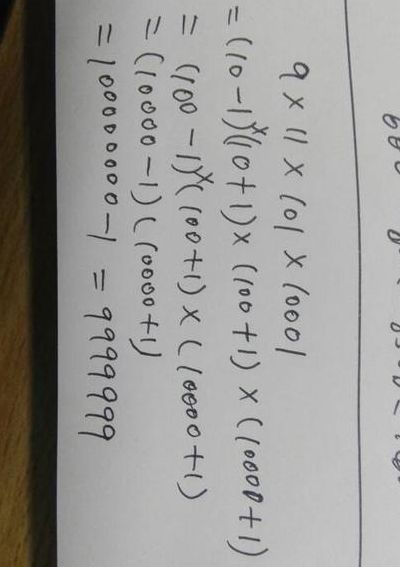 9 × 11 × 101 × 10001
= (10 - 1)×(10 + 1) × (100 + 1) × (10000 + 1)
= (100 - 1)×(100 + 1) × (10000 + 1)
= (10000 - 1)(10000 + 1)
= 100000000 - 1 = 9999999